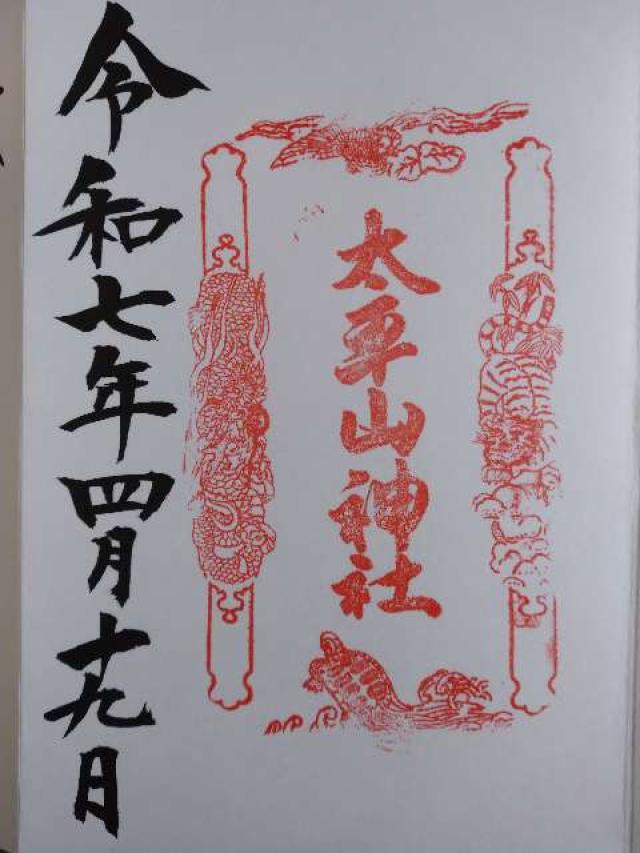 太平山神社
令和七年四月十九日